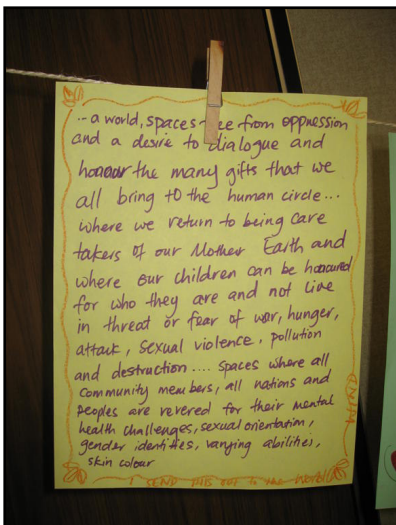 ... a world, spaces free from oppression
and a desire to dialogue and
honour the many gifts that we
all bring to the human circle...
where we return to being care
takers of our Mother Earth and
where our children can be honoured
for who they are and not live
in threat or fear of war, hunger,
attack, sexual violence, pollution
and destruction.... spaces where all
community members, all nations and
peoples are revered for their mental
health challenges, sexual orientation,
gender identities, varying abilities,
skin colour
I SEND THIS OUT to the world